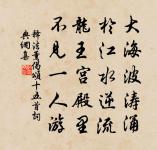 大海波涛涌
於江水逆流
龍王宫殿里
不見一人游
释法薰偈颂十五首詞
典網集